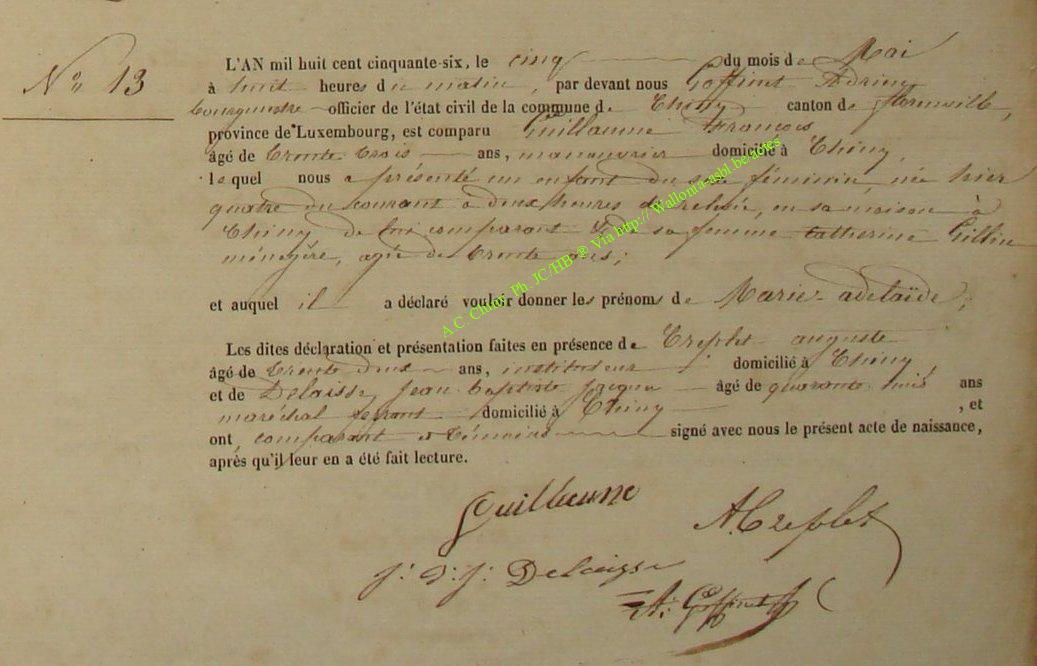 N° 13
L'AN mil huit cent cinquante-six, le cinq du mois de Mai
à huit heures du matin, par devant nous Goffinet Adrien,
bourgmestre officier de l'état civil de la commune de Chiny canton de florenville,
province de Luxembourg, est comparu Guillaume François
âgé de trente trois ans, manouvrier domicilié à Chiny,
lequel nous a présenté un enfant du sexe féminin, née hier
quatre du courant à deux heures de relevée, en sa maison à
Chiny de lui comparant & de sa femme Catherine Gillin
ménagère, agée de trente ans;
et auquel il a déclaré vouloir donner les prénoms de Marie-adelaïde;
Les dites déclaration et présentation faites en présence de Treplet auguste
âgé de trente deux ans, instituteur domicilié à Chiny,
et de Delaisse Jean baptiste jacque âgé de quarante huit ans
maréchal ferrant domicilié à Chiny , et
ont, comparant et témoins signé avec nous le présent acte de naissance,
après qu'il leur en a été fait lecture.
Guillaume
A. Treplet
J: B: J: Delaisse
A: Goffinet
A.C. Chiny Ph. JC/HB ® Via http://Wallonia-asbl.be/actes